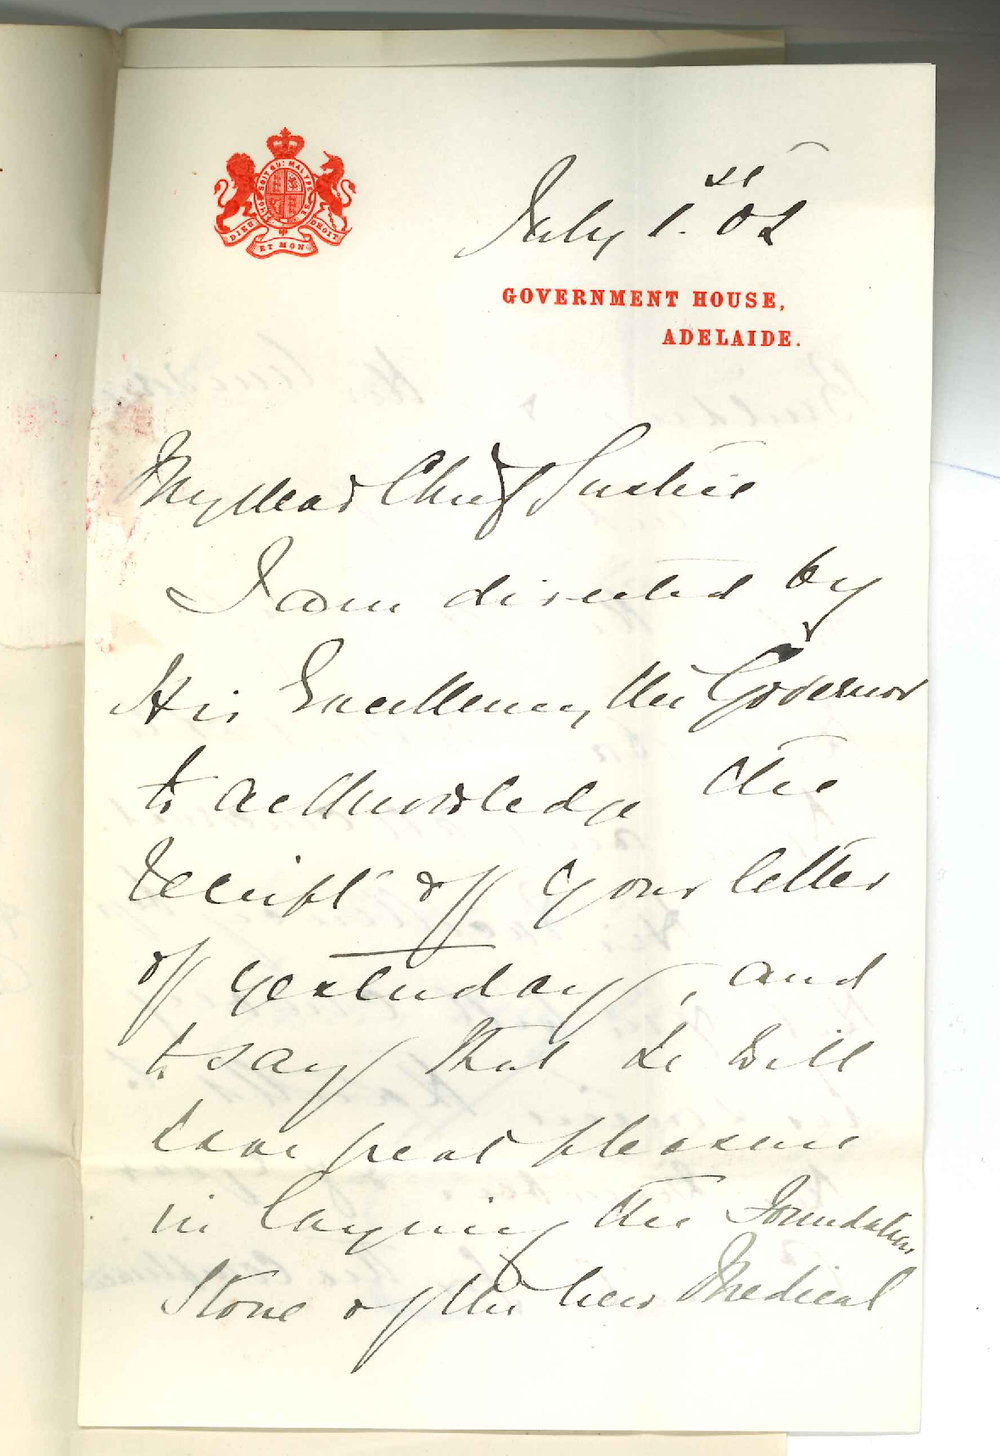 HONI SOIT QUI MAL Y PENSE
DIEU ET MON DROIT
July 1st. 02
GOVERNMENT HOUSE,
ADELAIDE.
My dear Chief Justice
I am directed by
His Excellency the Governor
to acknowledge the
receipt of your letter
of yesterday, and
to say that he will
have great pleasure
in laying the Foundation
Stone of the new Medical